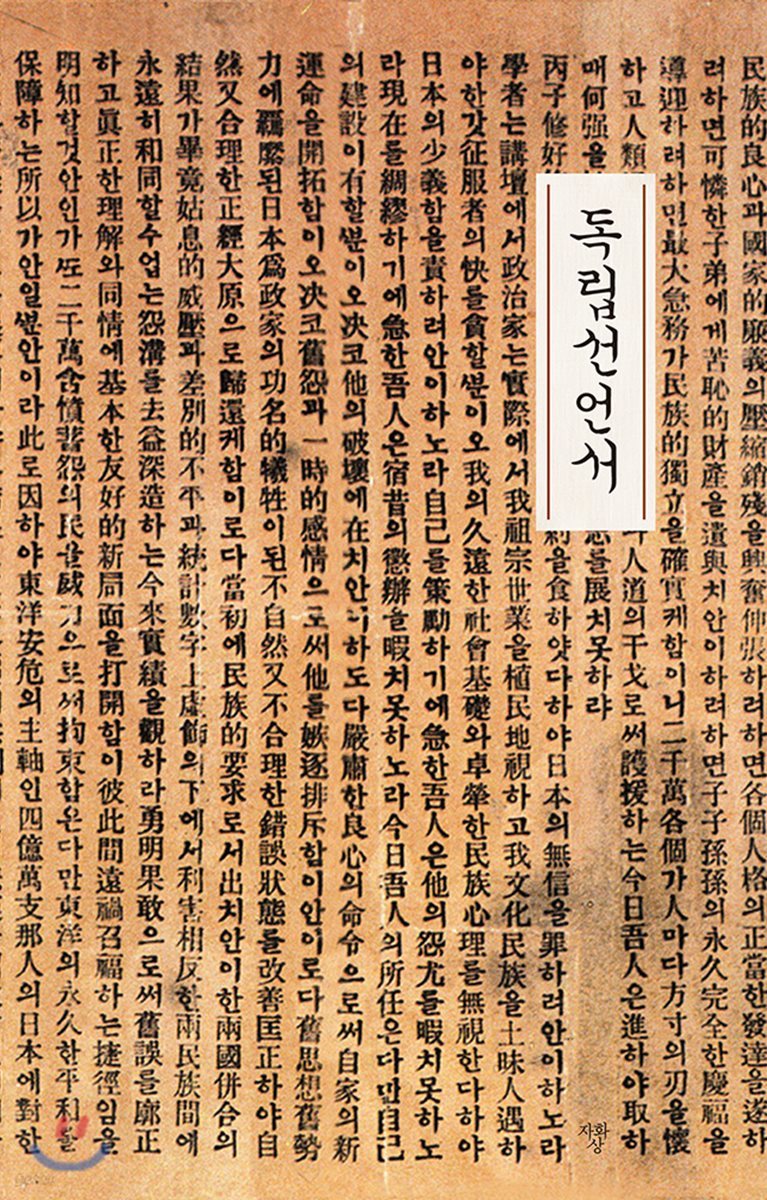 독립선언서
民族的良心과國家的廉義의壓縮銷殘을興奮伸張하려하면各個人格의正當한發達을遂하
려하면可憐한子弟에게苦恥的財產을遺與치안이하려하면子子孫孫의永久完全한慶福을
導迎하려하면最大急務가民族的獨立을確實케함이니二千萬各個가人마다方寸의刃을懷
하고人類
人道의干戈로써護援하는今日吾人은進하야取하
매何强을
를展치못하랴
丙子修好
을食하얏다하야日本의無信을罪하려안이하노라
學者는講壇에서政治家는實際에서我祖宗世業을植民地視하고我文化民族을土昧人遇하
야한갓征服者의快를貪할뿐이오我의久遠한社會基礎와卓犖한民族心理를無視한다하야
日本의少義함을責하려안이하노라自己를策勵하기에急한吾人은他의怨尤를暇치못하노
라現在를綢繆하기에急한吾人은宿昔의懲辦을暇치못하노라今日吾人의所任은다만自己
의建設이有할뿐이오決코他의破壞에在치안이하도다嚴肅한良心의命令으로써自家의新
運命을開拓함이오決코舊怨과一時的感情으로써他를嫉逐排斥함이안이로다舊思想舊勢
力에羈縻된日本爲政家의功名的犧牲이된不自然又不合理한錯誤狀態를改善匡正하야自
然又合理한正經大原으로歸還케함이로다當初에民族的要求로서出치안이한兩國併合의
結果가畢竟姑息的威壓과差別的不平과統計數字上虛飾의下에서利害相反한兩民族間에
永遠히和同할수업는怨溝를去益深造하는今來實績을觀하라勇明果敢으로써舊誤를廓正
하고眞正한理解와同情에基本한友好的新局面을打開함이彼此間遠禍召福하는捷徑임을
明知할것안인가또二千萬含憤蓄怨의民을威力으로써拘束함은다만東洋의永久한平和를
保障하는所以가안일뿐안이라此로因하야東洋安危의主軸인四億萬支那人의日本에對한
자화상